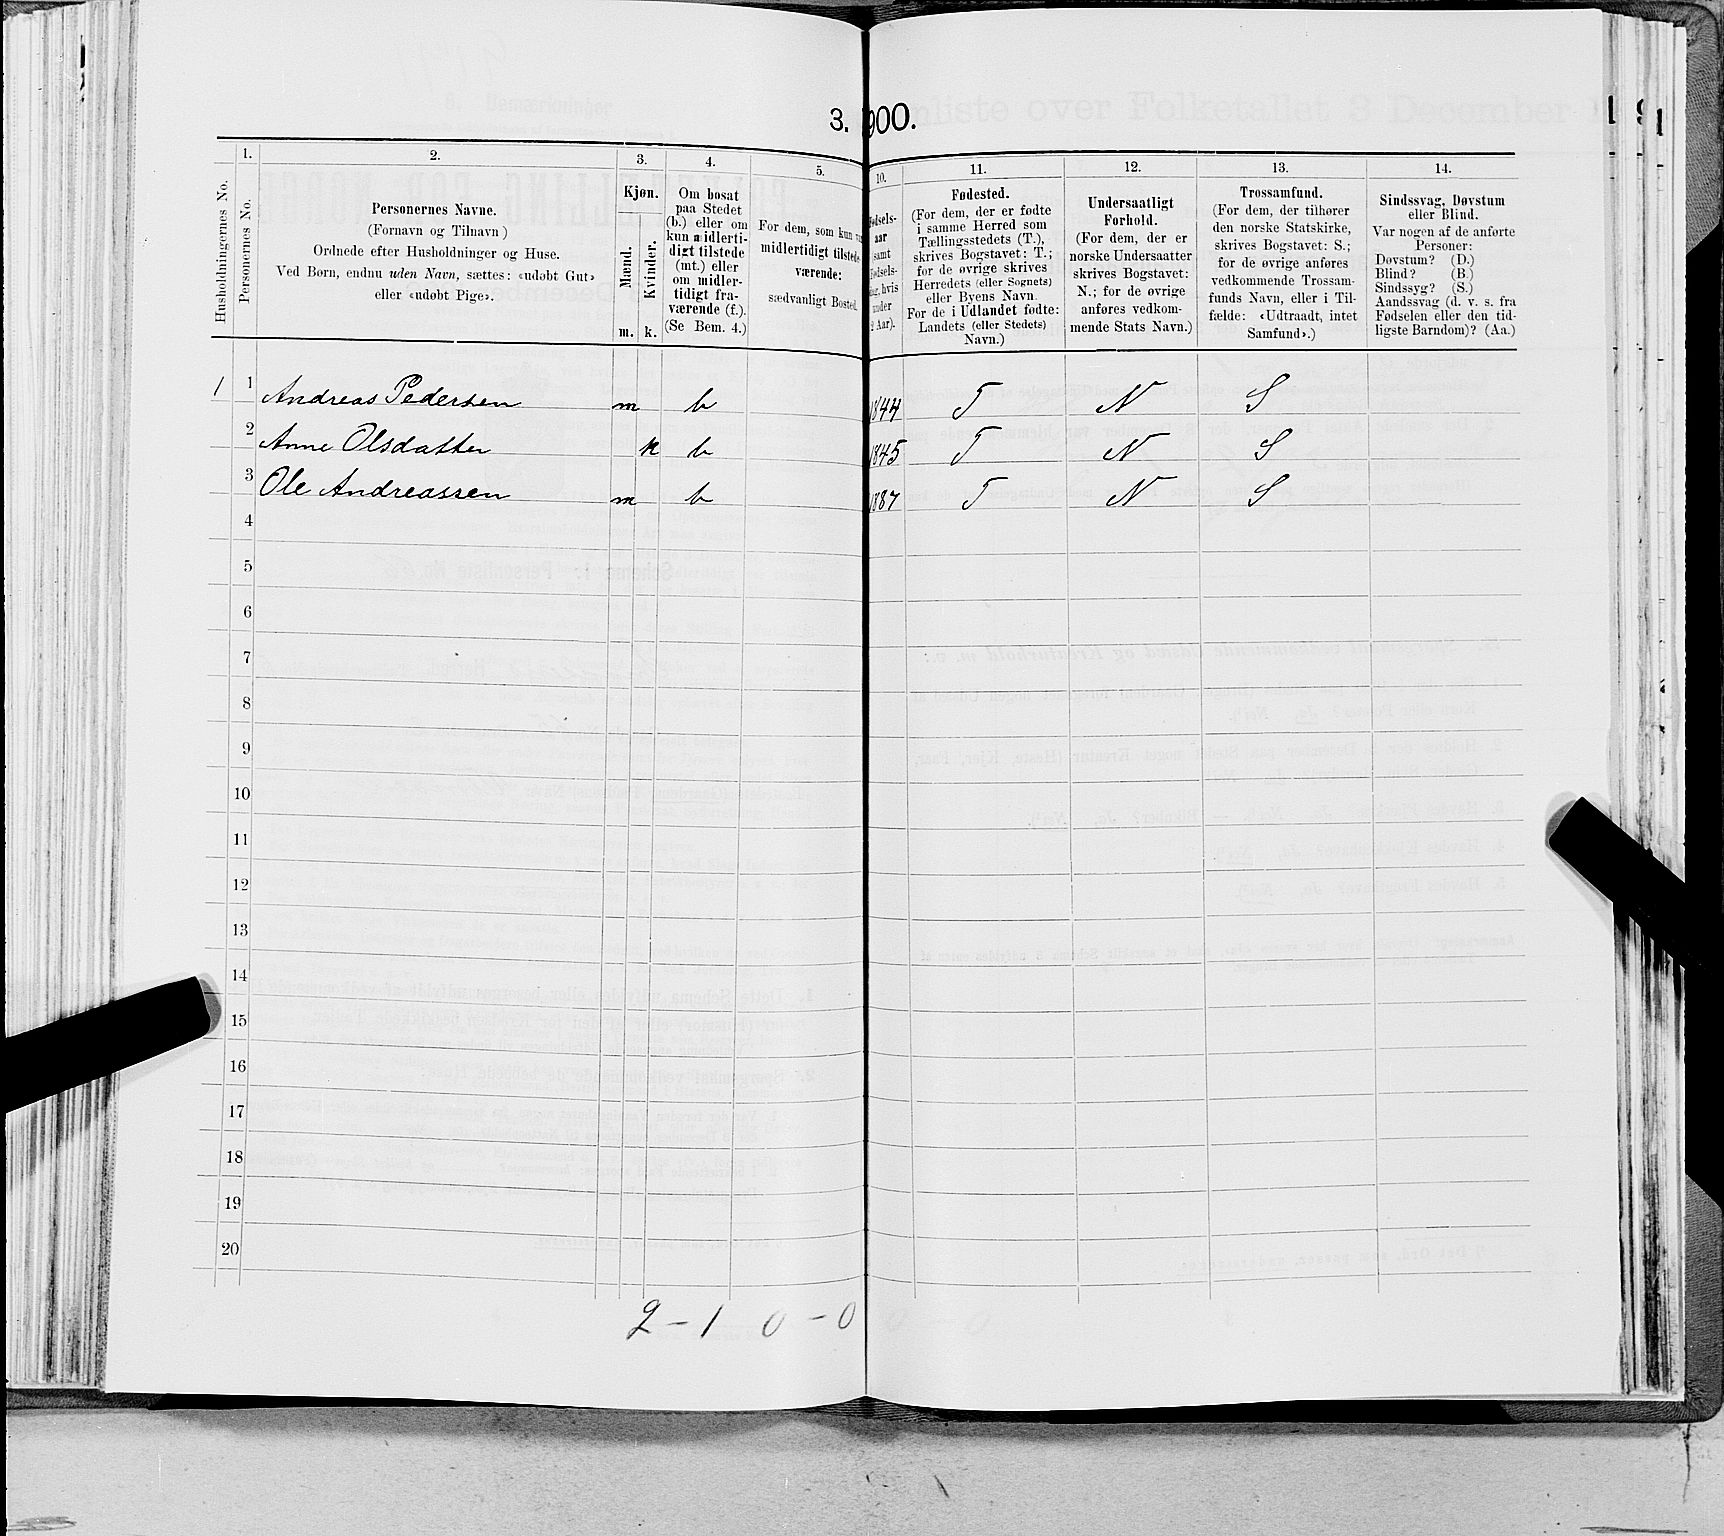 3. 900.
Husholdningernes No.
1. Personernes No.
2.
Personernes Navne.
(Fornavn og Tilnavn)
Ordnede efter Husholdninger og Huse.
Ved Børn, endnu uden Navn, sættes: «udøbt Gut»
eller «udøbt Pige».
3.
Kjøn.
Mænd.
Kvinder.
m. k.
4.
Om bosat
paa Stedet
(b.) eller om
kun midlerti-
digt tilstede
(mt.) eller
om midler-
tidigt fra-
værende (f.).
(Se Bem. 4.)
5.
For dem, som kun
midlertidigt tilstede-
værende:
sædvanligt Bosted.
10.
Fødsels-
aar
samt
Fødsels-
dag, hvis
under
2 Aar).
11.
Fødested.
(For dem, der er fødte
i samme Herred som
Tællingsstedets (T.),
skrives Bogstavet: T.;
for de øvrige skrives
Herredets (eller Sognets)
eller Byens Navn.
For de i Udlandet fødte:
Landets (eller Stedets)
Navn.)
12.
Undersaatligt
Forhold.
(For dem, der er
norske Undersaatter
skrives Bogstavet:
N.; for de øvrige
anføres vedkom-
mende Stats Navn.)
13.
Trossamfund.
(For dem, der tilhører
den norske Statskirke,
skrives Bogstavet: S.;
for de øvrige anføres
vedkommende Trossam-
funds Navn, eller i Til-
fælde: «Udtraadt, intet
Samfund».)
14.
Sindssvag, Døvstum
eller Blind.
Var nogen af de anførte
Personer:
Døvstum? (D.)
Blind? (B.)
Sindssyg? (S.)
Aandssvag (d. v. s. fra
Fødselen eller den tid-
ligste Barndom)? (Aa.)
1 1 Andreas Pedersen m b 1844 T N S
2 Anne Olsdatter k b 1845 T N S
3 Ole Andreassen m b 1887 T N S
4
5
6
7
8
9
10
11
12
13
14
15
16
17
18
19
20
2 - 1 0 - 0